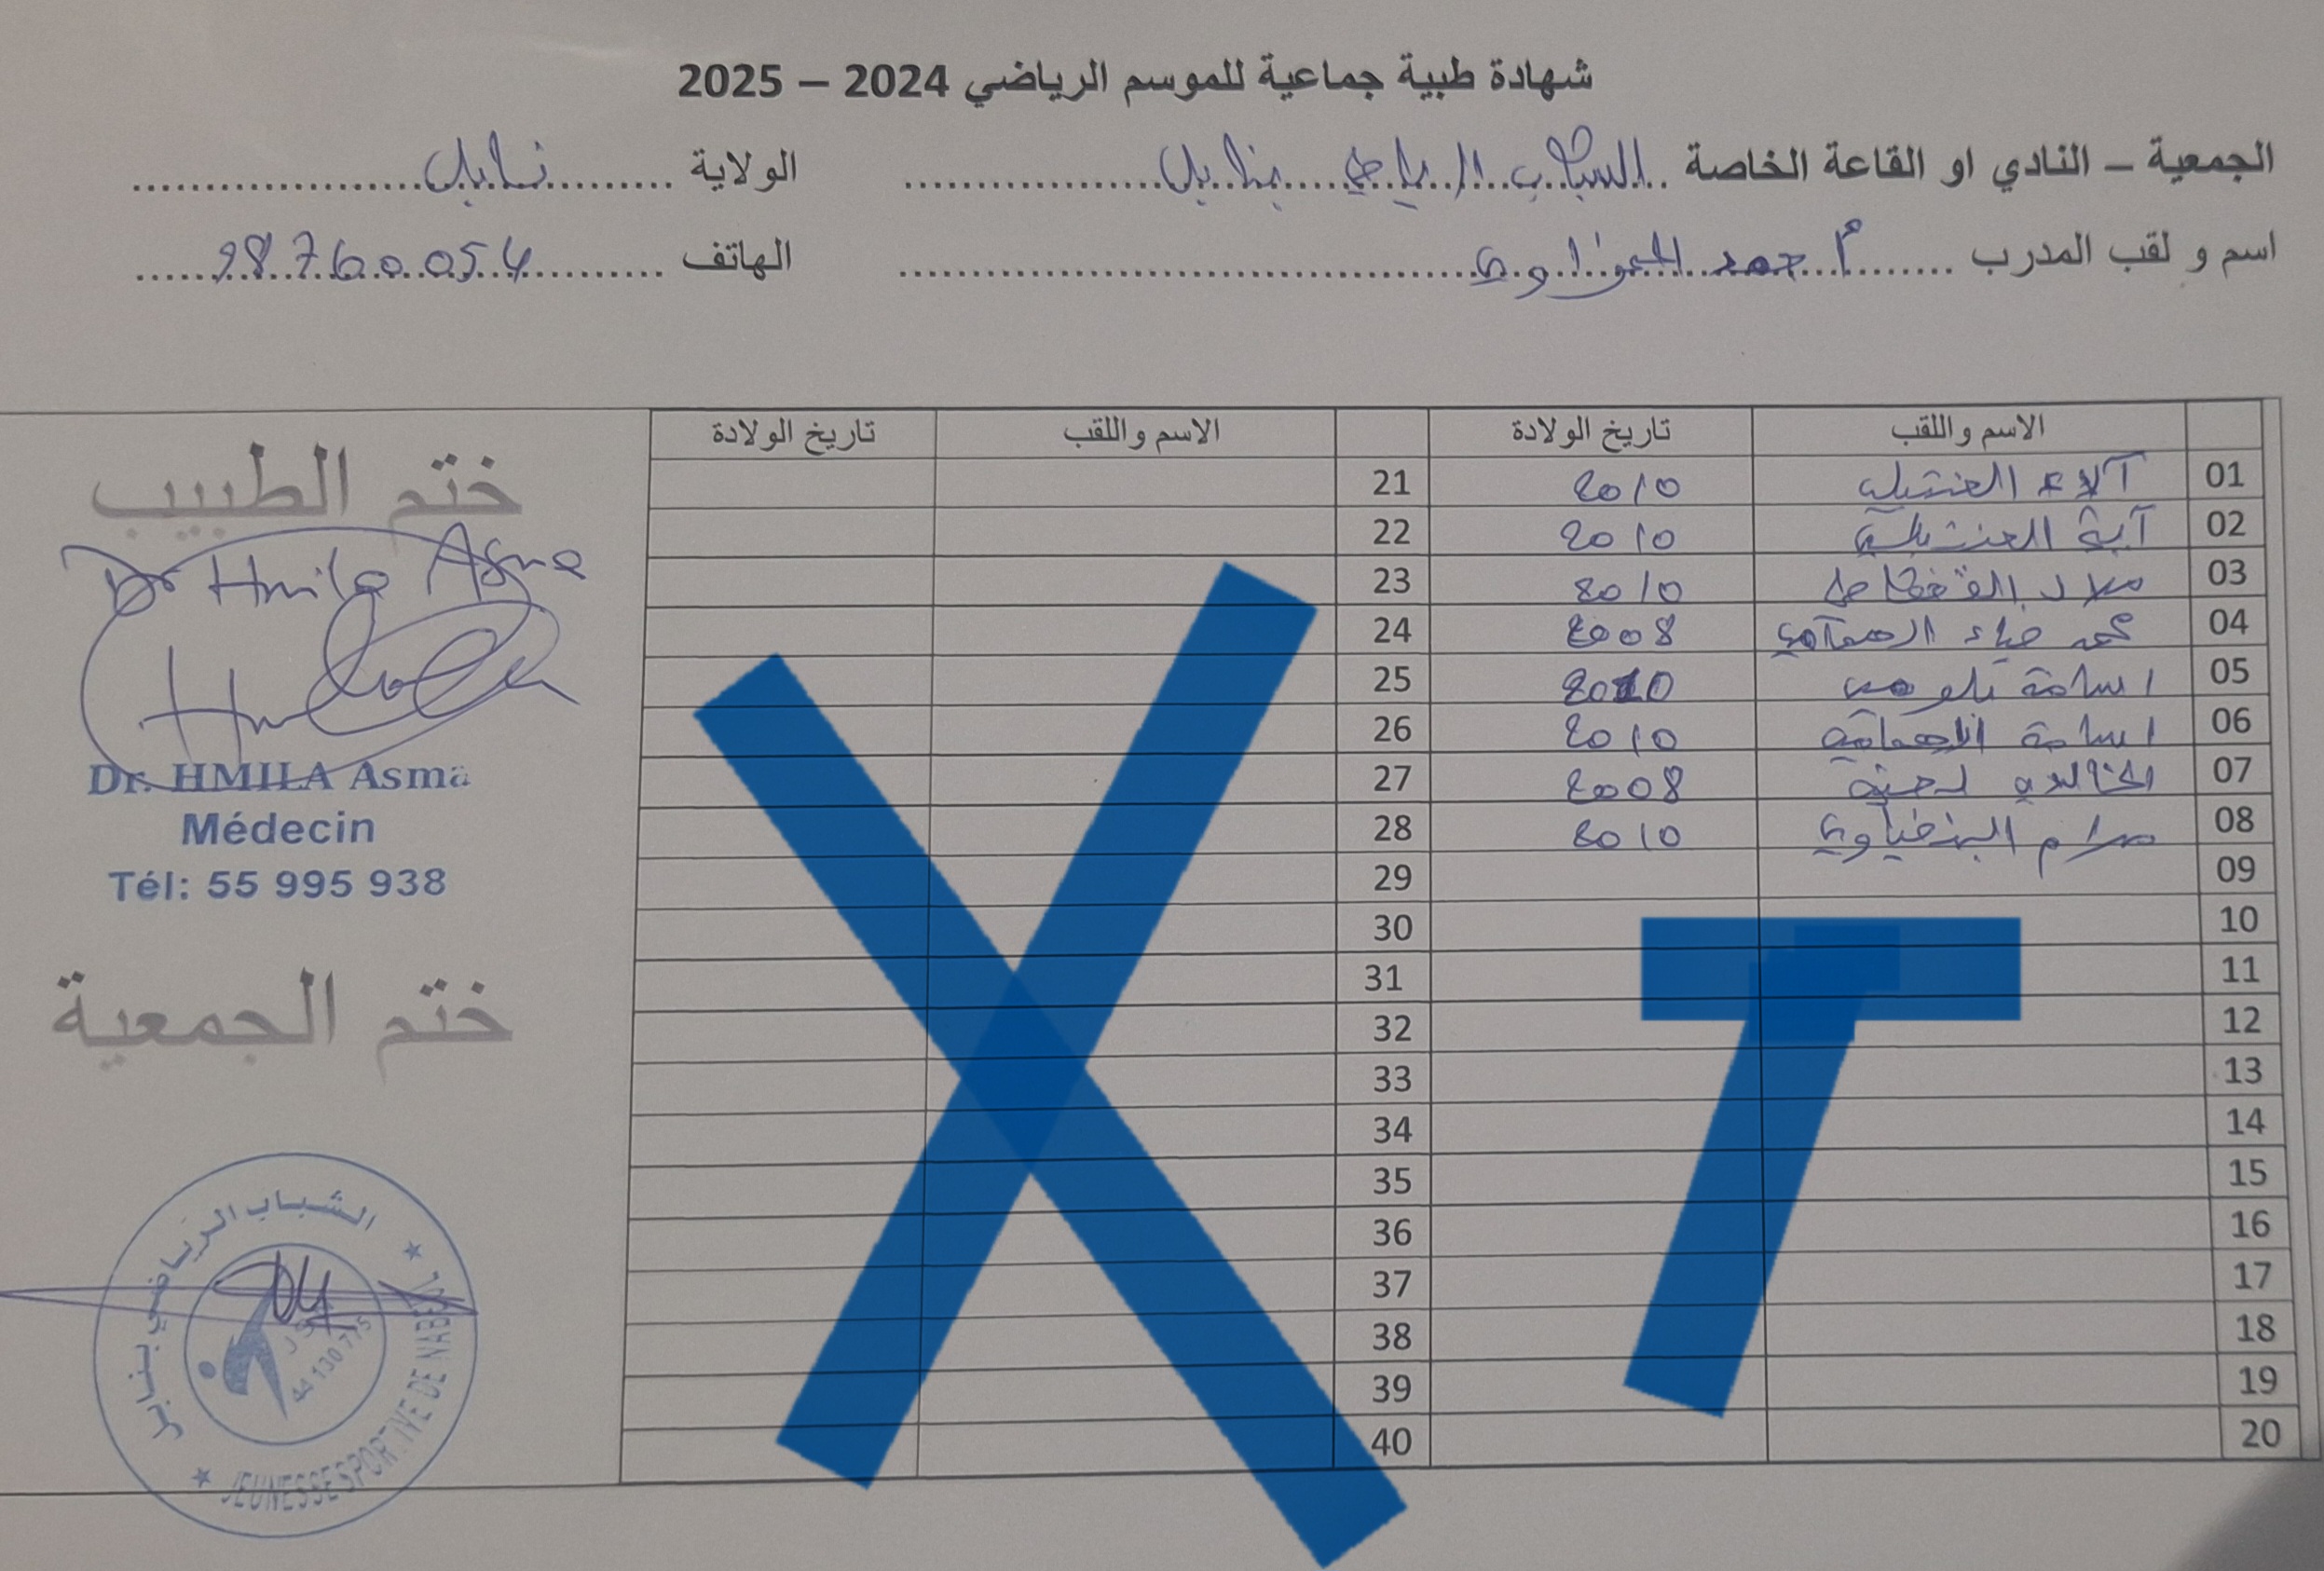 شهادة طبية جماعية للموسم الرياضي 2024 – 2025
الجمعية – النادي او القاعة الخاصة الشباب الرياضي بنابل الولاية نابل
اسم و لقب المدرب أحمد الهاتف 98760054
الاسم واللقب تاريخ الولادة الاسم واللقب تاريخ الولادة
01 آلاء 2010 21
02 آية 2010 22
03 2010 23
04 محمد ضياء الهمامي 2008 24
05 اسامة 2010 25
06 اسامة 2010 26
07 2008 27
08 مرام 2010 28
09 29
10 30
11 31
12 32
13 33
14 34
15 35
16 36
17 37
18 38
19 39
20 40
ختم الطبيب
Dr Hmila Asma
Dr. HMILA Asma
Médecin
Tél: 55 995 938
ختم الجمعية
الشباب الرياضي بنابل
JEUNESSE SPORTIVE DE NABEUL
X
T